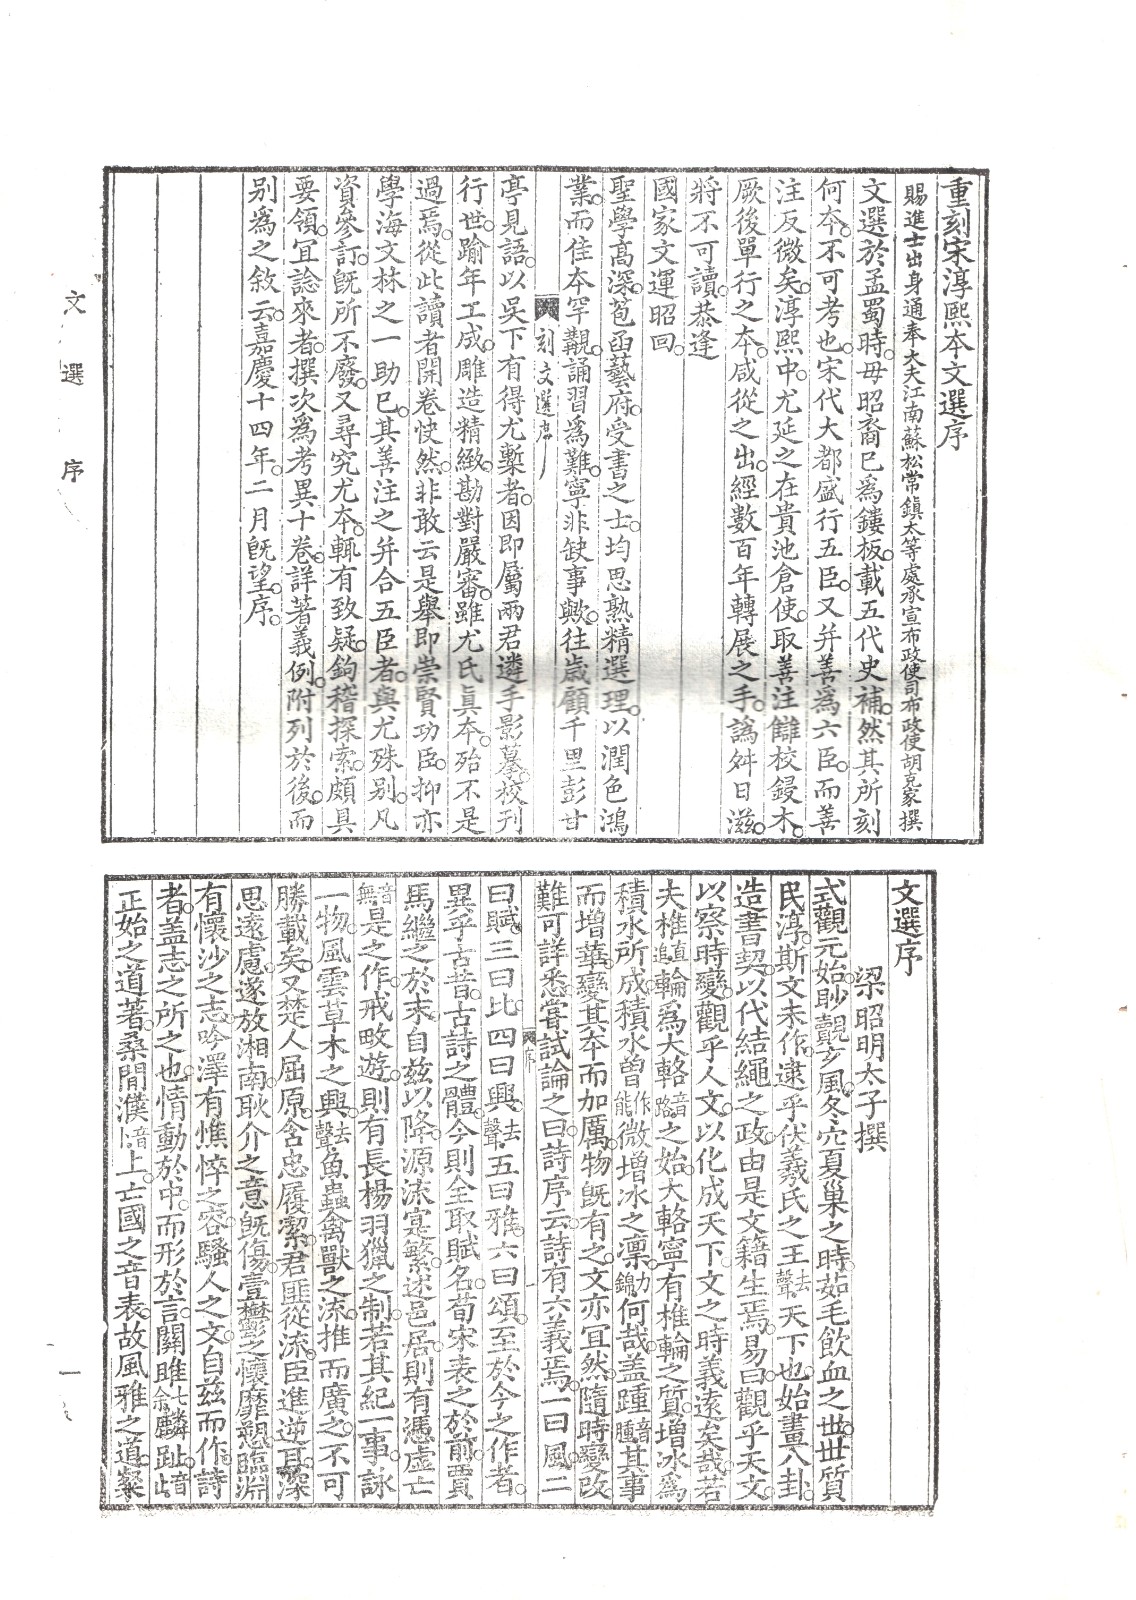 重刻宋淳熙本文選序
賜進士出身通奉大夫江南蘇松常鎮太等處承宣布政使司布政使胡克家撰
文選於孟蜀時。毋昭裔已爲鏤板。載五代史補。然其所刻
何本。不可考也。宋代大都盛行五臣。又并善爲六臣。而善
注反微矣。淳熙中。尤延之在貴池倉使。取善注讎校鋟木。
厥後單行之本。咸從之出。經數百年轉展之手。譌舛日滋。
將不可讀。恭逢
國家文運昭回。
聖學高深。苞函藝府。受書之士。均思熟精選理。以潤色鴻
業。而佳本罕觀。誦習爲難。寧非缺事歟。往歲顧千里彭甘
刻文選序
亭見語。以吳下有得尤槧者。因即屬兩君遴手影摹。挍刊
行世。踰年工成。雕造精緻。勘對嚴審。雖尤氏眞本。殆不是
過焉。從此讀者開卷快然。非敢云是舉即崇賢功臣。抑亦
學海文林之一助已。其善注之并合五臣者。與尤殊別。凡
資參訂。既所不廢。又尋究尤本。輒有致疑。鉤稽探索。頗具
要領。宜諗來者。撰次爲考異十卷。詳著義例。附列於後。而
別爲之敘云。嘉慶十四年。二月既望。序。
文選序
梁昭明太子撰
式觀元始。眇覿玄風。冬穴夏巢之時。茹毛飲血之世。世質
民淳。斯文未作。逮乎伏羲氏之王去聲天下也。始畫八卦。
造書契。以代結繩之政。由是文籍生焉。易曰。觀乎天文。
以察時變。觀乎人文。以化成天下。文之時義遠矣哉。若
夫椎直追輪爲大輅音路之始。大輅寧有椎輪之質。增冰爲
積水所成。積水曾作能微增冰之凜力錦何哉。蓋踵音腫其事
而增華。變其本而加厲。物既有之。文亦宜然。隨時變改。
難可詳悉。嘗試論之曰。詩序云。詩有六義焉。一曰風。二
序
一
曰賦。三曰比。四曰興。去聲五曰雅。六曰頌。至於今之作者。
異乎古昔。古詩之體。今則全取賦名。荀宋表之於前。賈
馬繼之於末。自茲以降。源流寔繁。述邑居。則有憑虛亡
音無是之作。戒畋遊。則有長楊羽獵之制。若其紀一事。詠
一物。風雲草木之興。去聲魚蟲禽獸之流。推而廣之。不可
勝載矣。又楚人屈原。含忠履潔。君匪從流。臣進逆耳。深
思遠慮。遂放湘南。耿介之意既傷。壹鬱之懷靡愬。臨淵
有懷沙之志。吟澤有憔悴之容。騷人之文。自茲而作。詩
者。蓋志之所之也。情動於中。而形於言。關雎七余麟趾。音止
正始之道著。桑間濮音卜上。亡國之音表。故風雅之道。粲
文選序
一